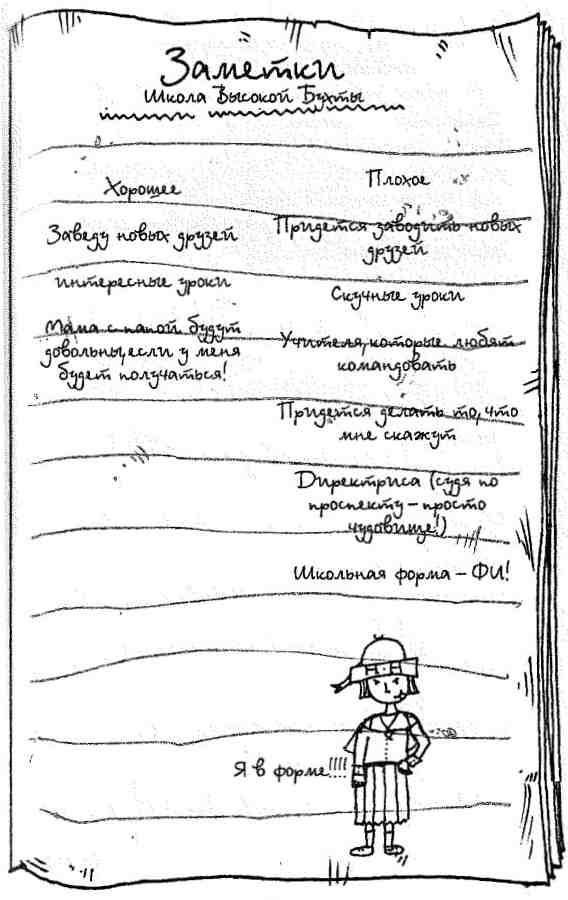 Заметки
Школа Высокой Бухты
Хорошее
Заведу новых друзей
интересные уроки
Мама с папой будут
довольны, если у меня
будет получаться!
Плохое
Придется заводить новых
друзей
Скучные уроки
Учителя, которые любят
командовать
Придется делать то, что
мне скажут
Директриса (судя по
проспекту – просто
чудовище!)
Школьная форма – ФИ!
Я в форме!!!!